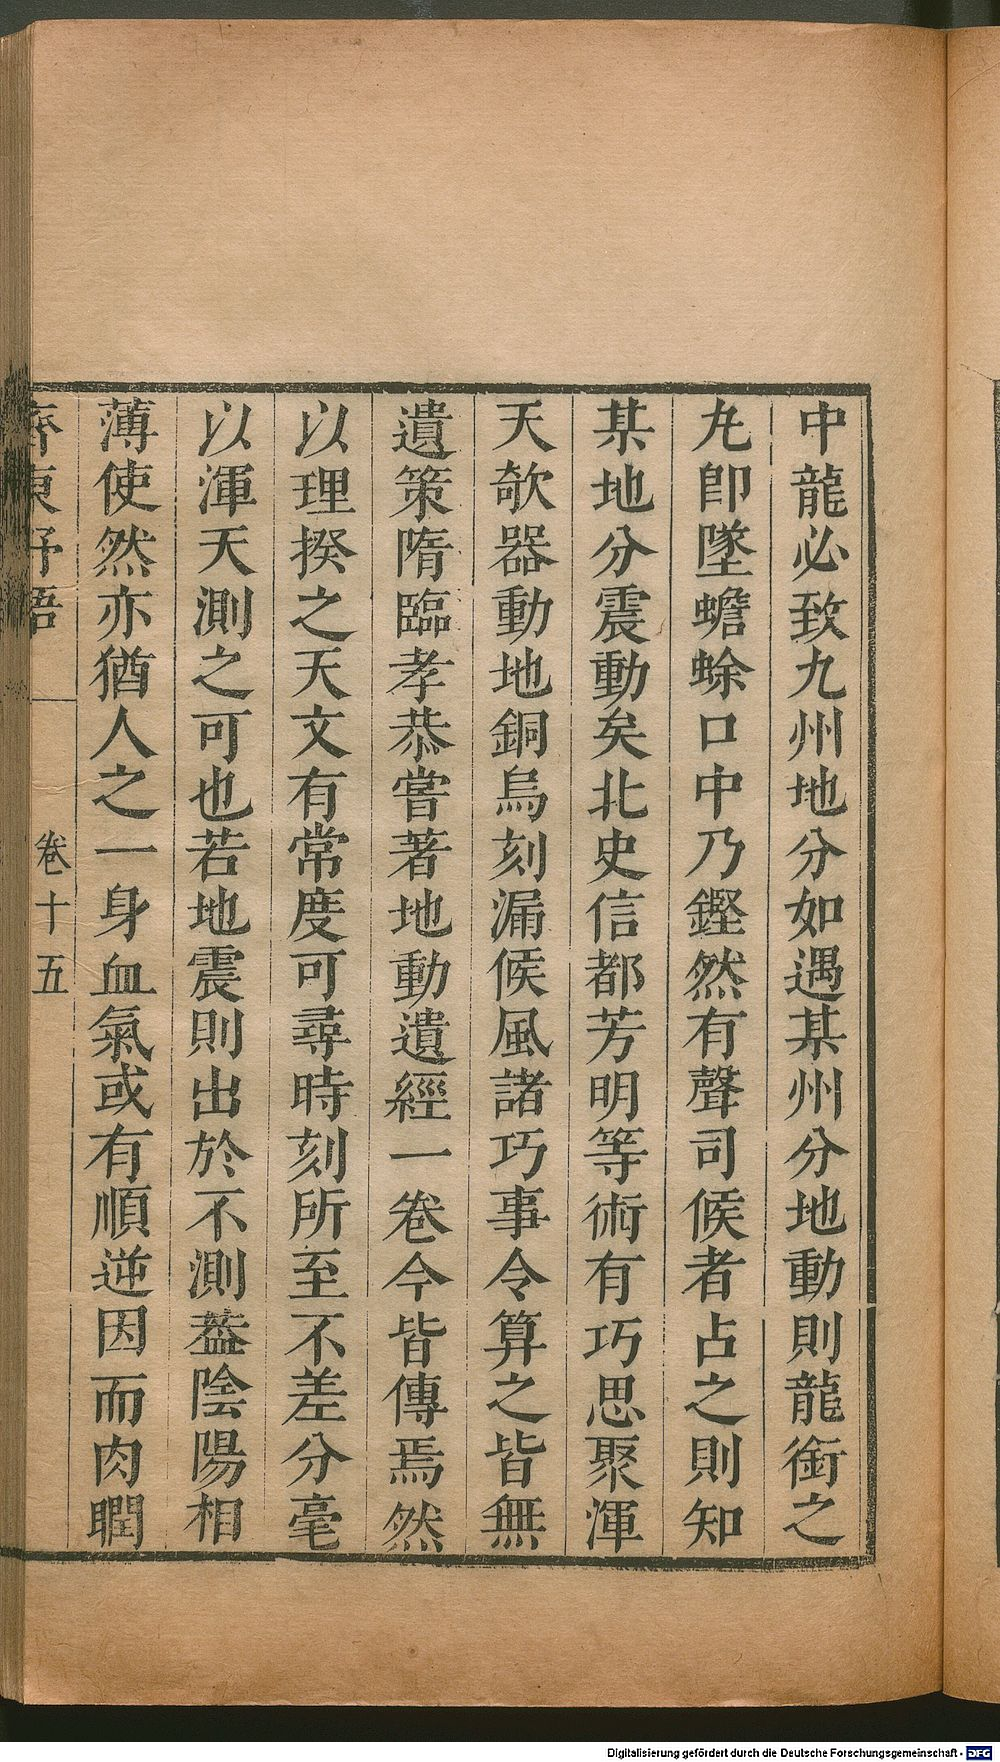 中龍必致九州地分如遇某州分地動則龍銜之
九卽墜蟾蜍口中乃鏗然有聲司候者占之則知
某地分震動矣北史信都芳明等術有巧思聚渾
天欹器動地銅烏刻漏候風諸巧事令算之皆無
遺策隋臨孝恭嘗著地動遺經一卷今皆傳焉然
以理揆之天文有常度可尋時刻所至不差分毫
以渾天測之可也若地震則出於不測葢陰陽相
薄使然亦猶人之一身血氣或有順逆因而肉瞤
齊東野語 卷十五
Digitalisierung gefördert durch die Deutsche Forschungsgemeinschaft - DFG